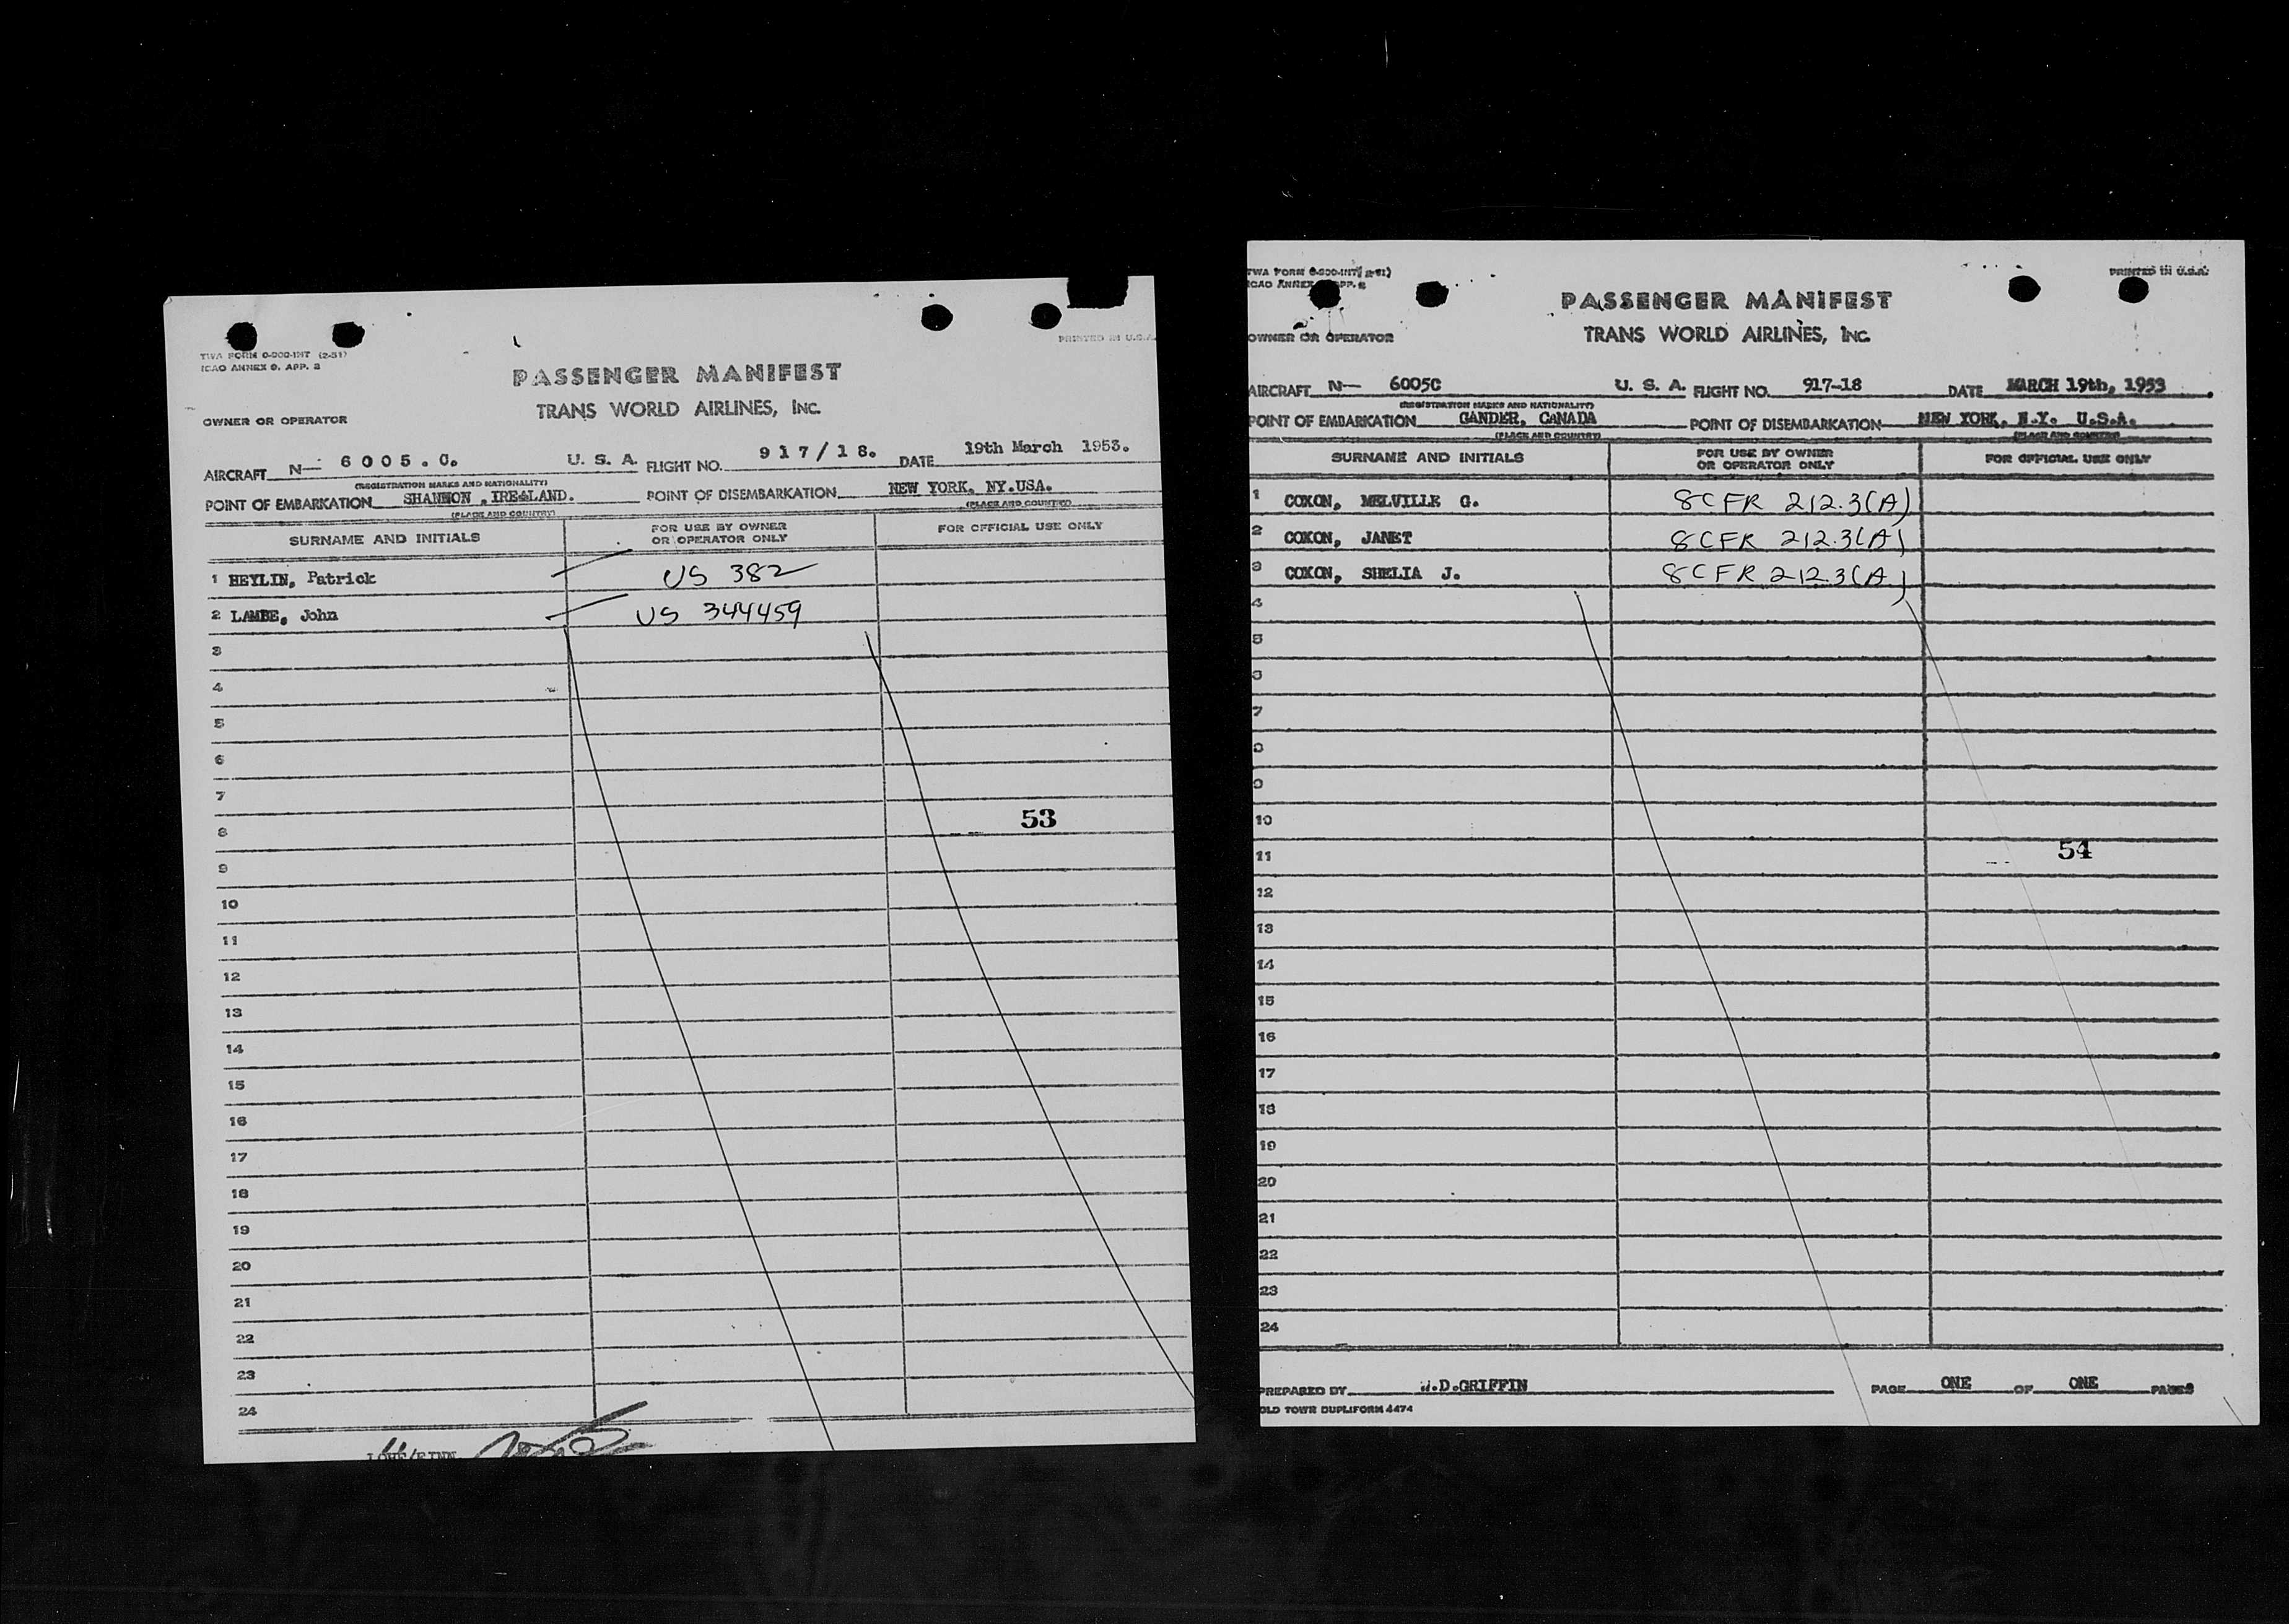 TWA FORM 0-200-INT (2-51)
ICAO ANNEX 9. APP. 2
PRINTED IN U.S.A.
PASSENGER MANIFEST
TRANS WORLD AIRLINES, INC.
OWNER OR OPERATOR
AIRCRAFT N— 6005.C. U. S. A. FLIGHT NO. 917/18. DATE 19th March 1953.
(REGISTRATION MARKS AND NATIONALITY)
POINT OF EMBARKATION SHANNON , IRELAND. POINT OF DISEMBARKATION NEW YORK. NY.USA.
(PLACE AND COUNTRY) (PLACE AND COUNTRY)
SURNAME AND INITIALS FOR USE BY OWNER OR OPERATOR ONLY FOR OFFICIAL USE ONLY
1 HEYLIN, Patrick US 382
2 LAMBE, John US 344459
3
4
5
6
7
53
8
9
10
11
12
13
14
15
16
17
18
19
20
21
22
23
24
TWA FORM 0-200-INT (2-51)
ICAO ANNEX APP. 2
PRINTED IN U.S.A.
PASSENGER MANIFEST
TRANS WORLD AIRLINES, INC.
OWNER OR OPERATOR
AIRCRAFT N— 6005C U. S. A. FLIGHT NO. 917-18 DATE MARCH 19th, 1953
(REGISTRATION MARKS AND NATIONALITY)
POINT OF EMBARKATION GANDER, CANADA POINT OF DISEMBARKATION NEW YORK, N.Y. U.S.A.
(PLACE AND COUNTRY) (PLACE AND COUNTRY)
SURNAME AND INITIALS FOR USE BY OWNER OR OPERATOR ONLY FOR OFFICIAL USE ONLY
1 COXON, MELVILLE G. 8 CFR 212.3(A)
2 COXON, JANET 8 CFR 212.3(A)
3 COXON, SHELIA J. 8 CFR 212.3(A)
4
5
6
7
8
9
10
11 54
12
13
14
15
16
17
18
19
20
21
22
23
24
PREPARED BY J.D.GRIFFIN PAGE ONE OF ONE PAGES
OLD TOWN DUPLIFORM 4474